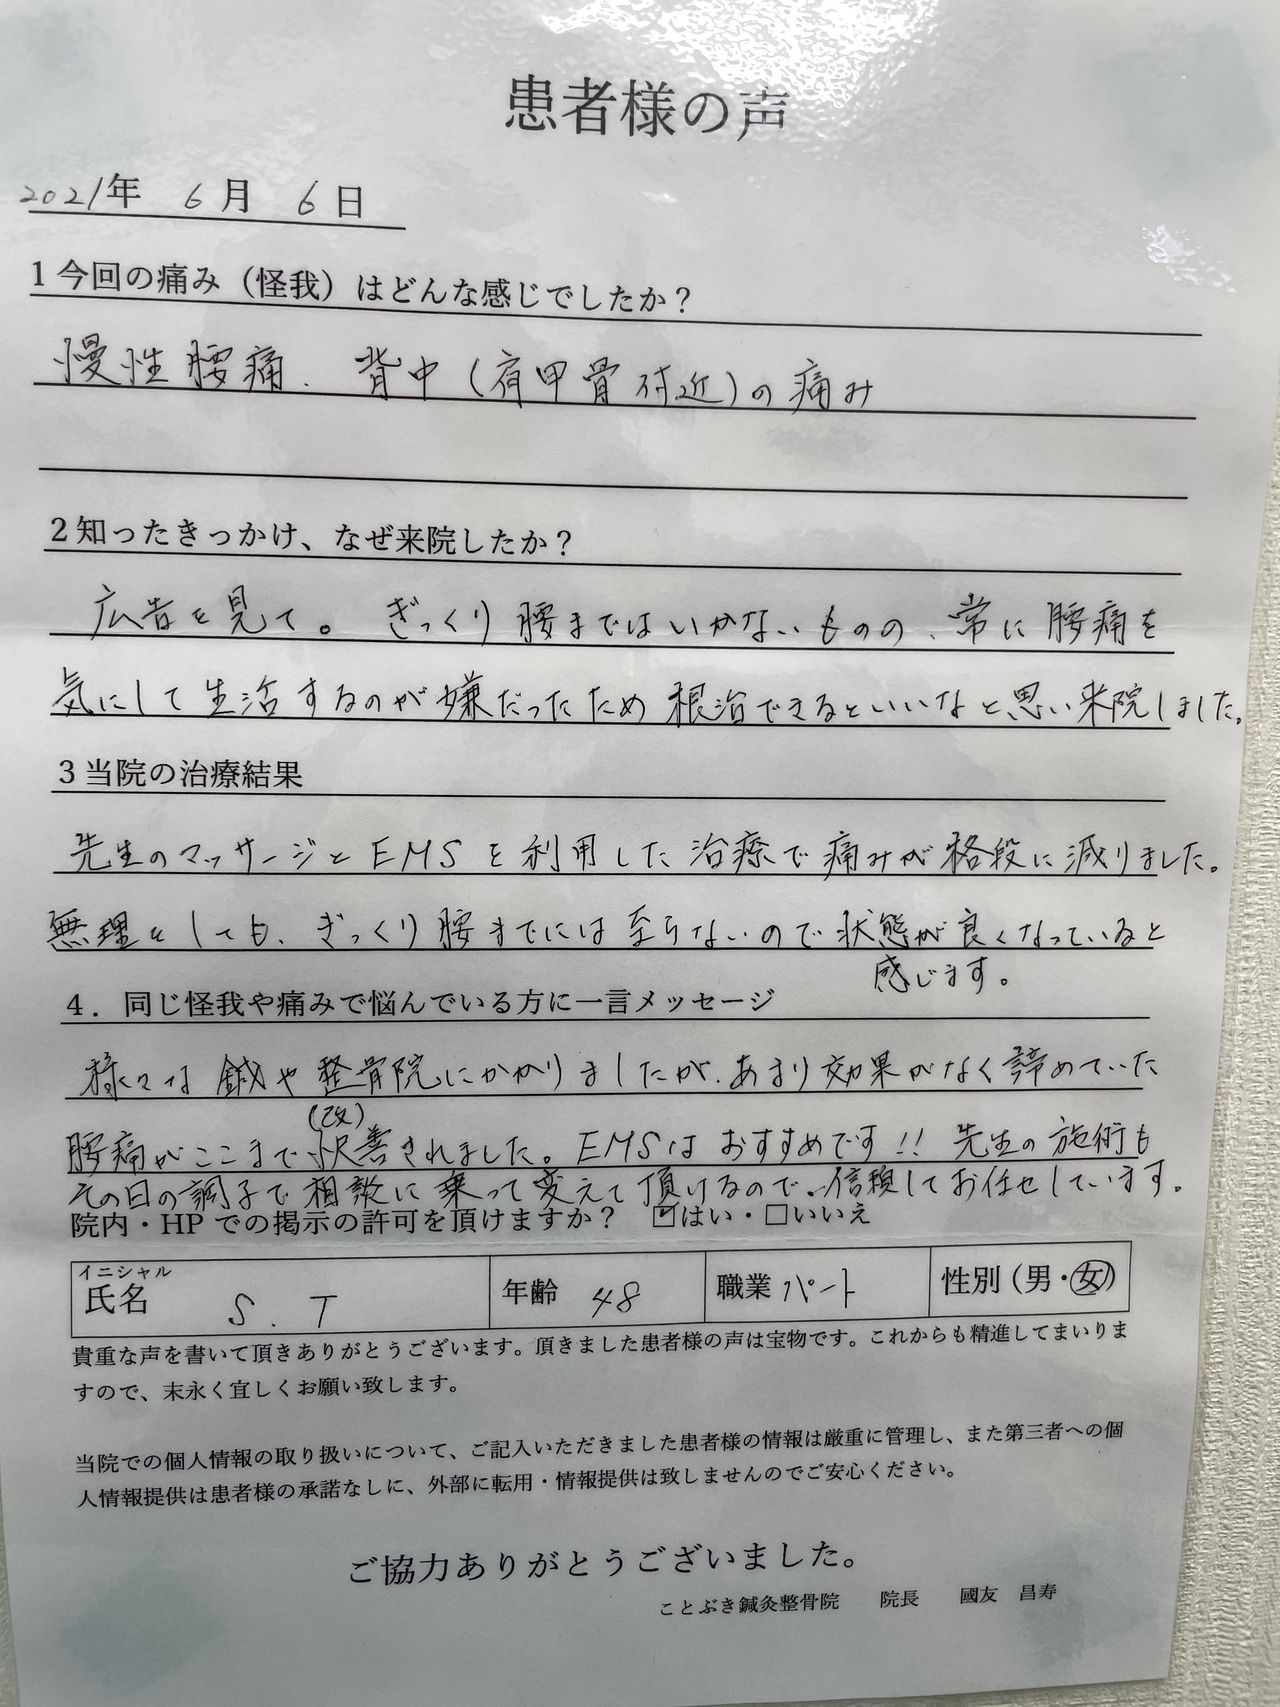 患者様の声
2021年 6月 6日
1今回の痛み（怪我）はどんな感じでしたか？
慢性腰痛、背中（肩甲骨付近）の痛み
2知ったきっかけ、なぜ来院したか？
広告を見て。ぎっくり腰まではいかないものの、常に腰痛を
気にして生活するのが嫌だったため根治できるといいなと思い来院しました。
3当院の治療結果
先生のマッサージとEMSを利用した治療で痛みが格段に減りました。
無理をしても、ぎっくり腰までには至らないので状態が良くなっていると
感じます。
4．同じ怪我や痛みで悩んでいる方に一言メッセージ
様々な鍼や整骨院にかかりましたが、あまり効果がなく諦めていた
（改）
腰痛がここまで快善されました。EMSはおすすめです!! 先生の施術も
その日の調子で相談に乗って変えて頂けるので、信頼してお任せしています。
院内・HPでの掲示の許可を頂けますか？ ☑はい・□いいえ
イニシャル
氏名 S.T 年齢 48 職業 パート 性別（男・女）
貴重な声を書いて頂きありがとうございます。頂きました患者様の声は宝物です。これからも精進してまいりま
すので、末永く宜しくお願い致します。
当院での個人情報の取り扱いについて、ご記入いただきました患者様の情報は厳重に管理し、また第三者への個
人情報提供は患者様の承諾なしに、外部に転用・情報提供は致しませんのでご安心ください。
ご協力ありがとうございました。
ことぶき鍼灸整骨院 院長 國友 昌寿